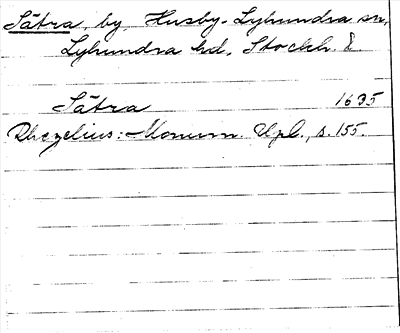 Sätra, by, Husby-Lyhundra sn,
Lyhundra hd, Stockh. l
Sätra 1635
Rhezelius: Monum. Upl., s. 155.